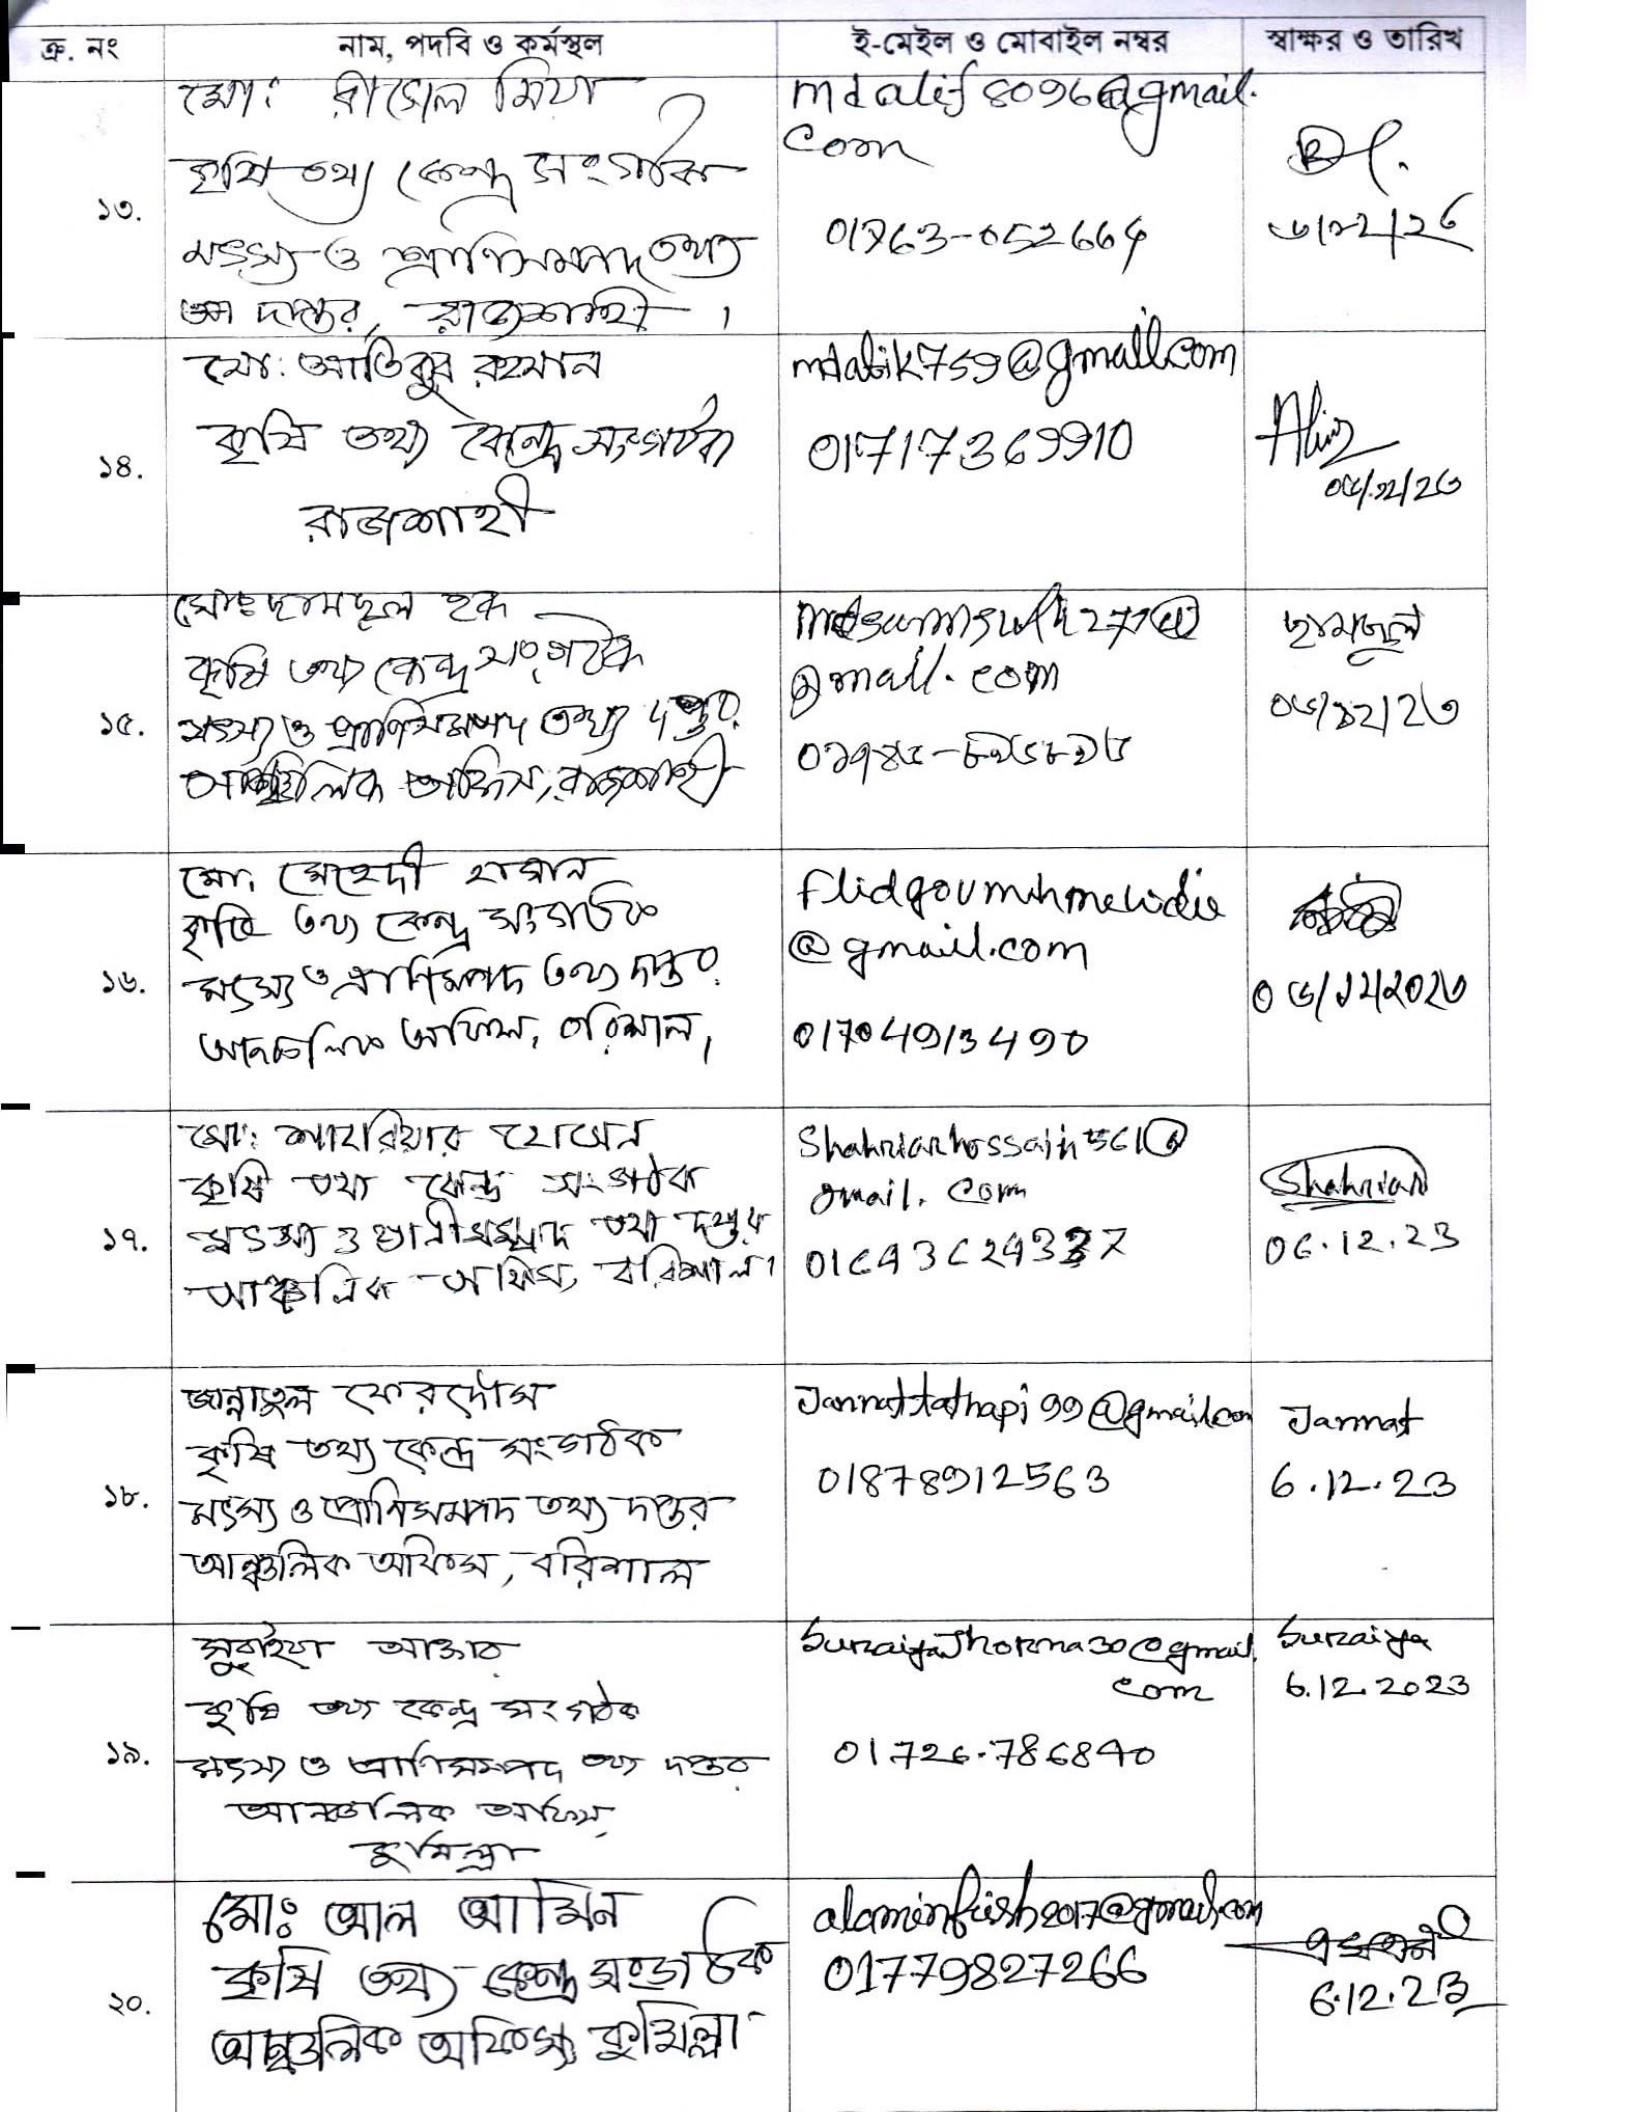 ক্র. নং নাম, পদবি ও কর্মস্থল ই-মেইল ও মোবাইল নম্বর স্বাক্ষর ও তারিখ
১৩.
মো: রাসেল মিয়া
কৃষি তথ্য কেন্দ্র সংগঠক
মৎস্য ও প্রাণিসম্পদ তথ্য
দপ্তর, রাজশাহী ।
mdalif8096@gmail.
com
01763-052664
১৪.
মো: আতিকুর রহমান
কৃষি তথ্য কেন্দ্র সংগঠক
রাজশাহী
mdatik759@gmail.com
01717369910
০৬/১২/২৩
১৫.
মোঃ হক
কৃষি তথ্য কেন্দ্র সংগঠক
মৎস্য ও প্রাণিসম্পদ তথ্য দপ্তর
আঞ্চলিক অফিস, রাজশাহী
gmail.com
০৬/১২/২৩
১৬.
মো: মেহেদী হাসান
কৃষি তথ্য কেন্দ্র সংগঠক
মৎস্য ও প্রাণিসম্পদ তথ্য দপ্তর
আঞ্চলিক অফিস, বরিশাল।
@gmail.com
01704913490
০৬/১২/২০২৩
১৭.
মো: শাহরিয়ার হোসেন
কৃষি তথ্য কেন্দ্র সংগঠক
মৎস্য ও প্রাণীসম্পদ তথ্য দপ্তর
আঞ্চলিক অফিস, বরিশাল।
Shahriarhossain561@
gmail.com
Shahriar
06.12.23
১৮.
জান্নাতুল ফেরদৌস
কৃষি তথ্য কেন্দ্র সংগঠক
মৎস্য ও প্রাণিসম্পদ তথ্য দপ্তর
আঞ্চলিক অফিস, বরিশাল
Jannattathapi99@gmail.com
01878912563
Jannat
6.12.23
১৯.
সুরাইয়া আক্তার
কৃষি তথ্য কেন্দ্র সংগঠক
মৎস্য ও প্রাণিসম্পদ তথ্য দপ্তর
আঞ্চলিক অফিস,
কুমিল্লা
SuraiyaJhorna30@gmail.
com
01726-786840
Suraiya
6.12.2023
২০.
মোঃ আল আমিন
কৃষি তথ্য কেন্দ্র সংগঠক
আঞ্চলিক অফিস, কুমিল্লা
alaminfish2017@gmail.com
01779827266
6.12.23